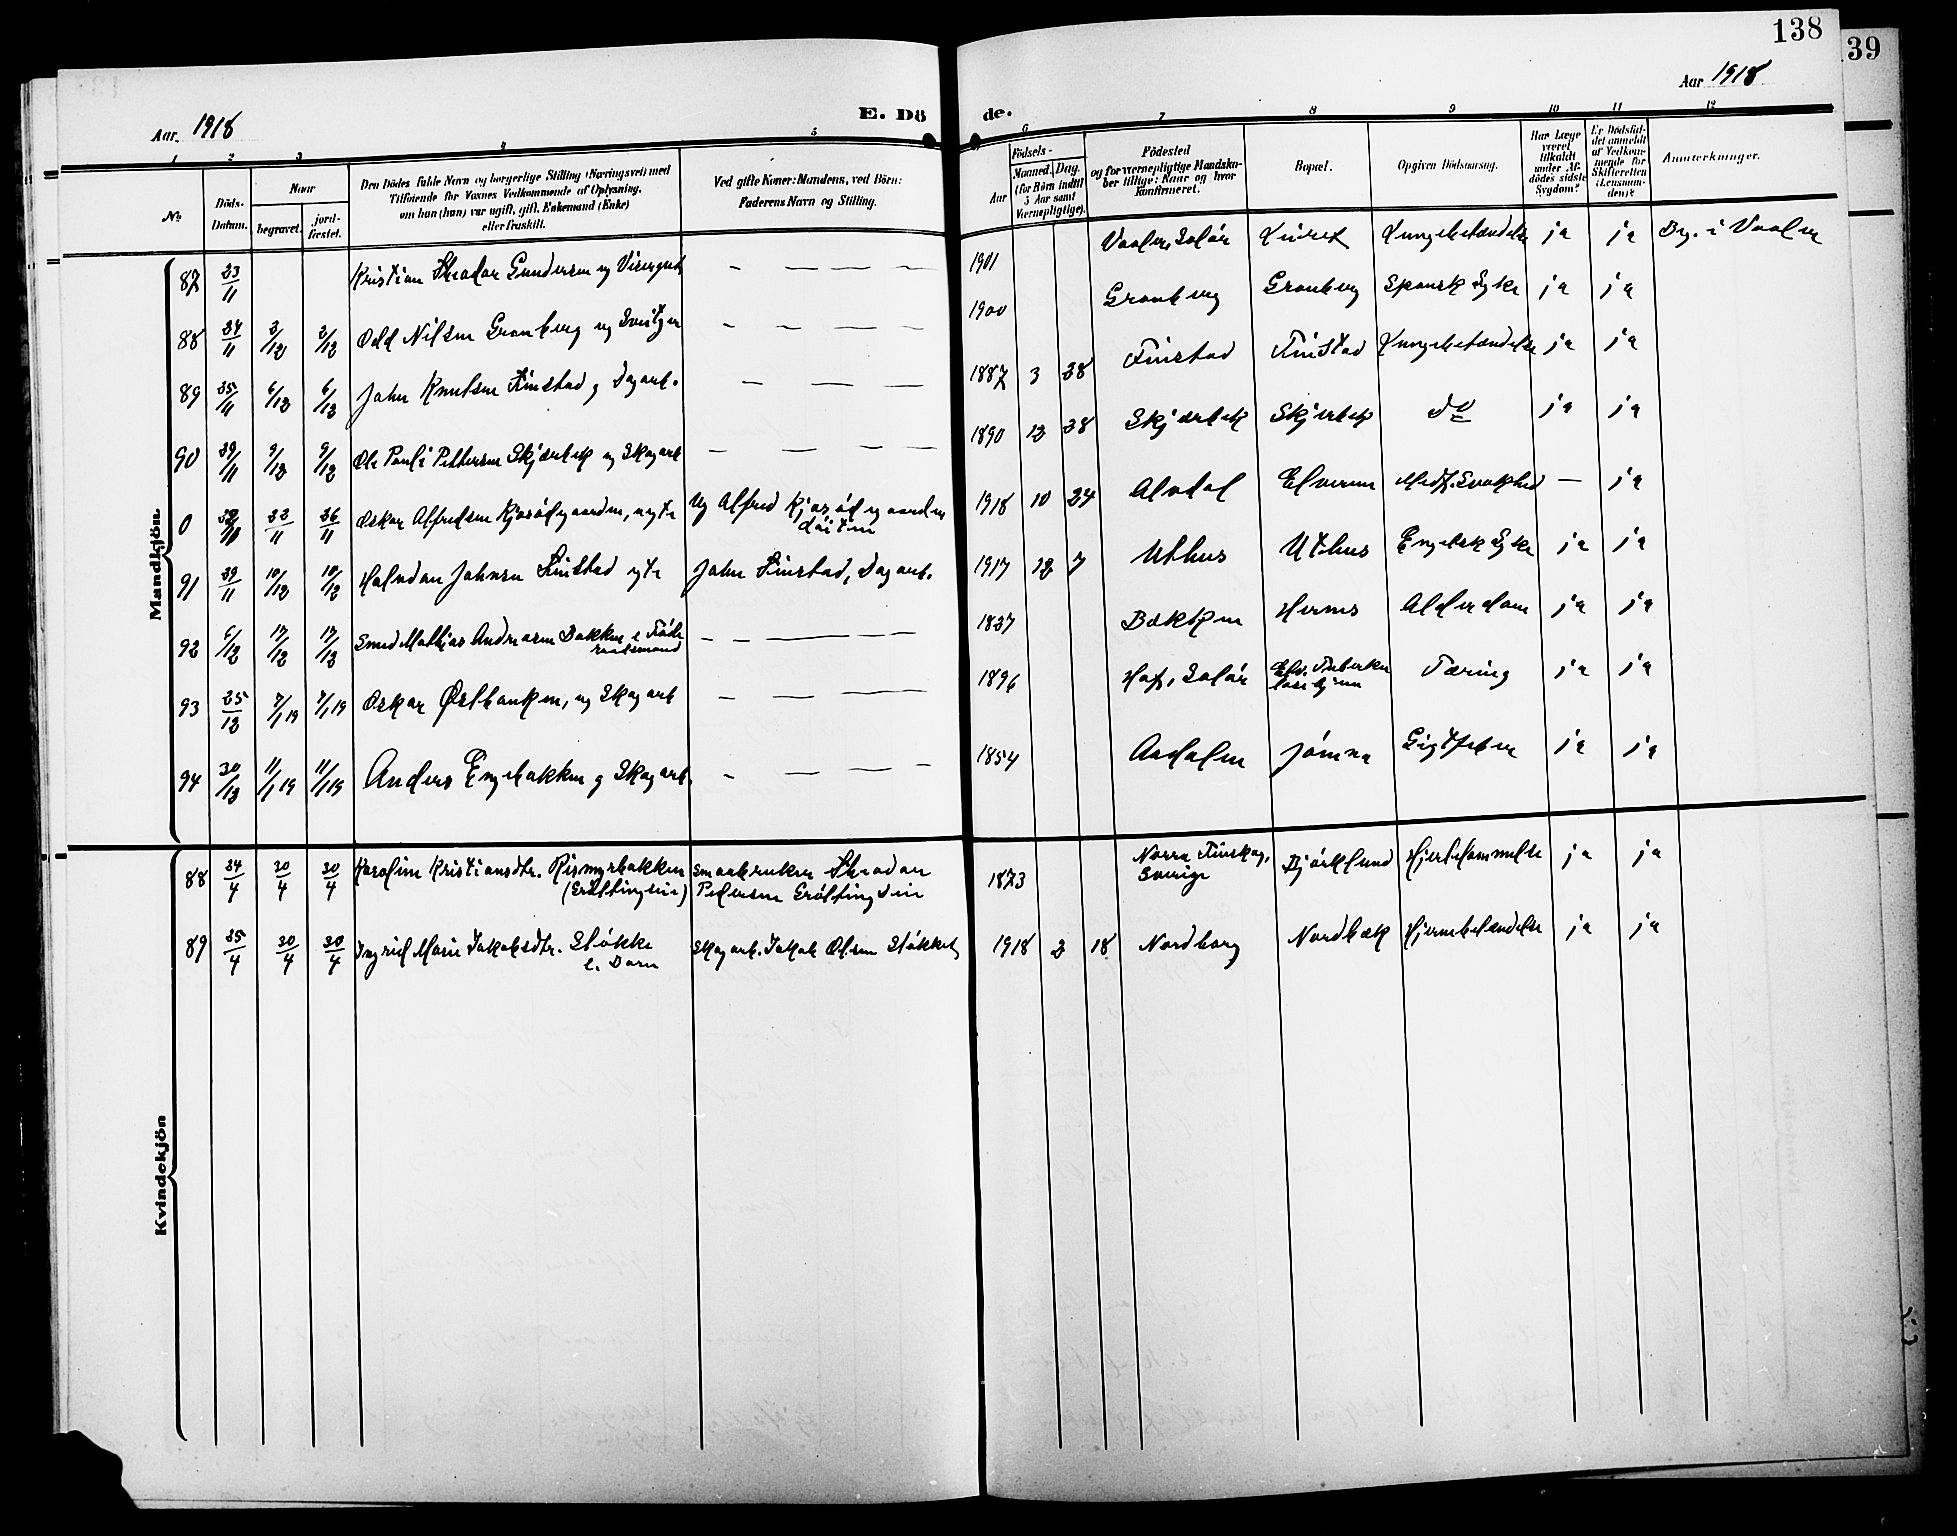 138
39
Aar. 1918
E. Dö de.
Aar 1918
1 2 3 4 5 6 7 8 9 10 11 12
No
Döds-Datum.
Naar
begravet.
jord-fæstet.
Den Dödes fulde Navn og borgerlige Stilling (Næringsvei) med
Tilföiende for Voxnes Vedkommende af Oplysning,
om han (hun) var ugift, gift, Enkemand (Enke)
eller fraskilt.
Ved gifte Koner: Mandens, ved Börn:
Faderens Navn og Stilling.
Födsels-
Aar
Maaned. Dag.
(for Börn indtil
5 Aar samt
Værnepligtige).
Födested
og for værnepligtige Mandska-
ber tillige: Naar og hvor
konfirmeret.
Bopæl.
Opgiven Dödsaarsag.
Har Læge
været
tilkaldt
under Af-
dödes sidste
Sygdom?
Er Dödsfal-
det anmeldt
af Vedkom-
mende for
Skifteretten
(Lensman-
den)?
Anmerkninger.
Mandkjön.
87 23/11 Kristian Theodor Gundersen ug — — — — 1901 Vaaler, Solør Lungebetændelse ja ja Beg. i Vaaler
88 24/11 3/12 3/12 Odd Nilsen Grønberg ug — — — — 1900 Grønberg Grønberg Spansk Syke ja ja
89 25/11 6/12 6/12 John Knutsen Finstad g Dagarb. — — — 1887 3 28 Finstad Finstad Lungebetændelse ja ja
90 29/11 9/12 9/12 Ole Pauli Pettersen Skjærbek ug Skogarb — — — — 1890 12 28 Skjærbek Skjærbek do ja ja
0 22/11 26/11 Oskar Alfredsen Kjosødegaarden, ægte Ug Alfred Kjosødegaarden
1918 10 24 Alvdal Elverum Medf. Svakhed — ja
91 29/11 10/12 10/12 Halvdan Johnsen Finstad ægte John Finstad, Dagarb. 1917 12 7 Uthus Uthus Engelsk Syke ja ja
92 6/12 17/12 17/12 Svend Mathias Andreasen Bakken e Føde
raadsmand — — — — — 1837 Bækken Hernes Alderdom ja ja
93 25/12 7/1 19 7/1 19 Oskar Østbanken, ug Skogarb — — — — 1896 Hof, Solør Elv. Tuberku
losehjem Tæring ja ja
94 30/12 11/1 19 11/1 19 Anders Engebakken g Skogarb. — — — — 1854 Aadalen Jømna Gigtfeber ja ja
Kvindekjön
88 24/4 30/4 30/4 Karoline Kristiansdtr. Rismyrbakken
(Grøttingseie) Smaabruker Theodor
Pedersen Grøttingseie 1873 Norra Finskog,
Sverige Bjørklund Hjertelammelse ja ja
89 25/4 30/4 30/4 Ingrid Marie Jakobsdtr. Støkke
e. Barn Skogarb. Jakob Olsen Støkket 1918 2 18 Nordborg Nordbæk Hjernebetændelse ja ja